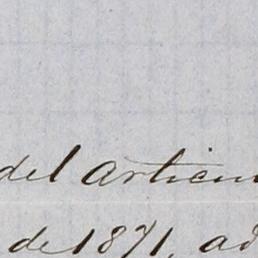 del articu
de 1871, ad